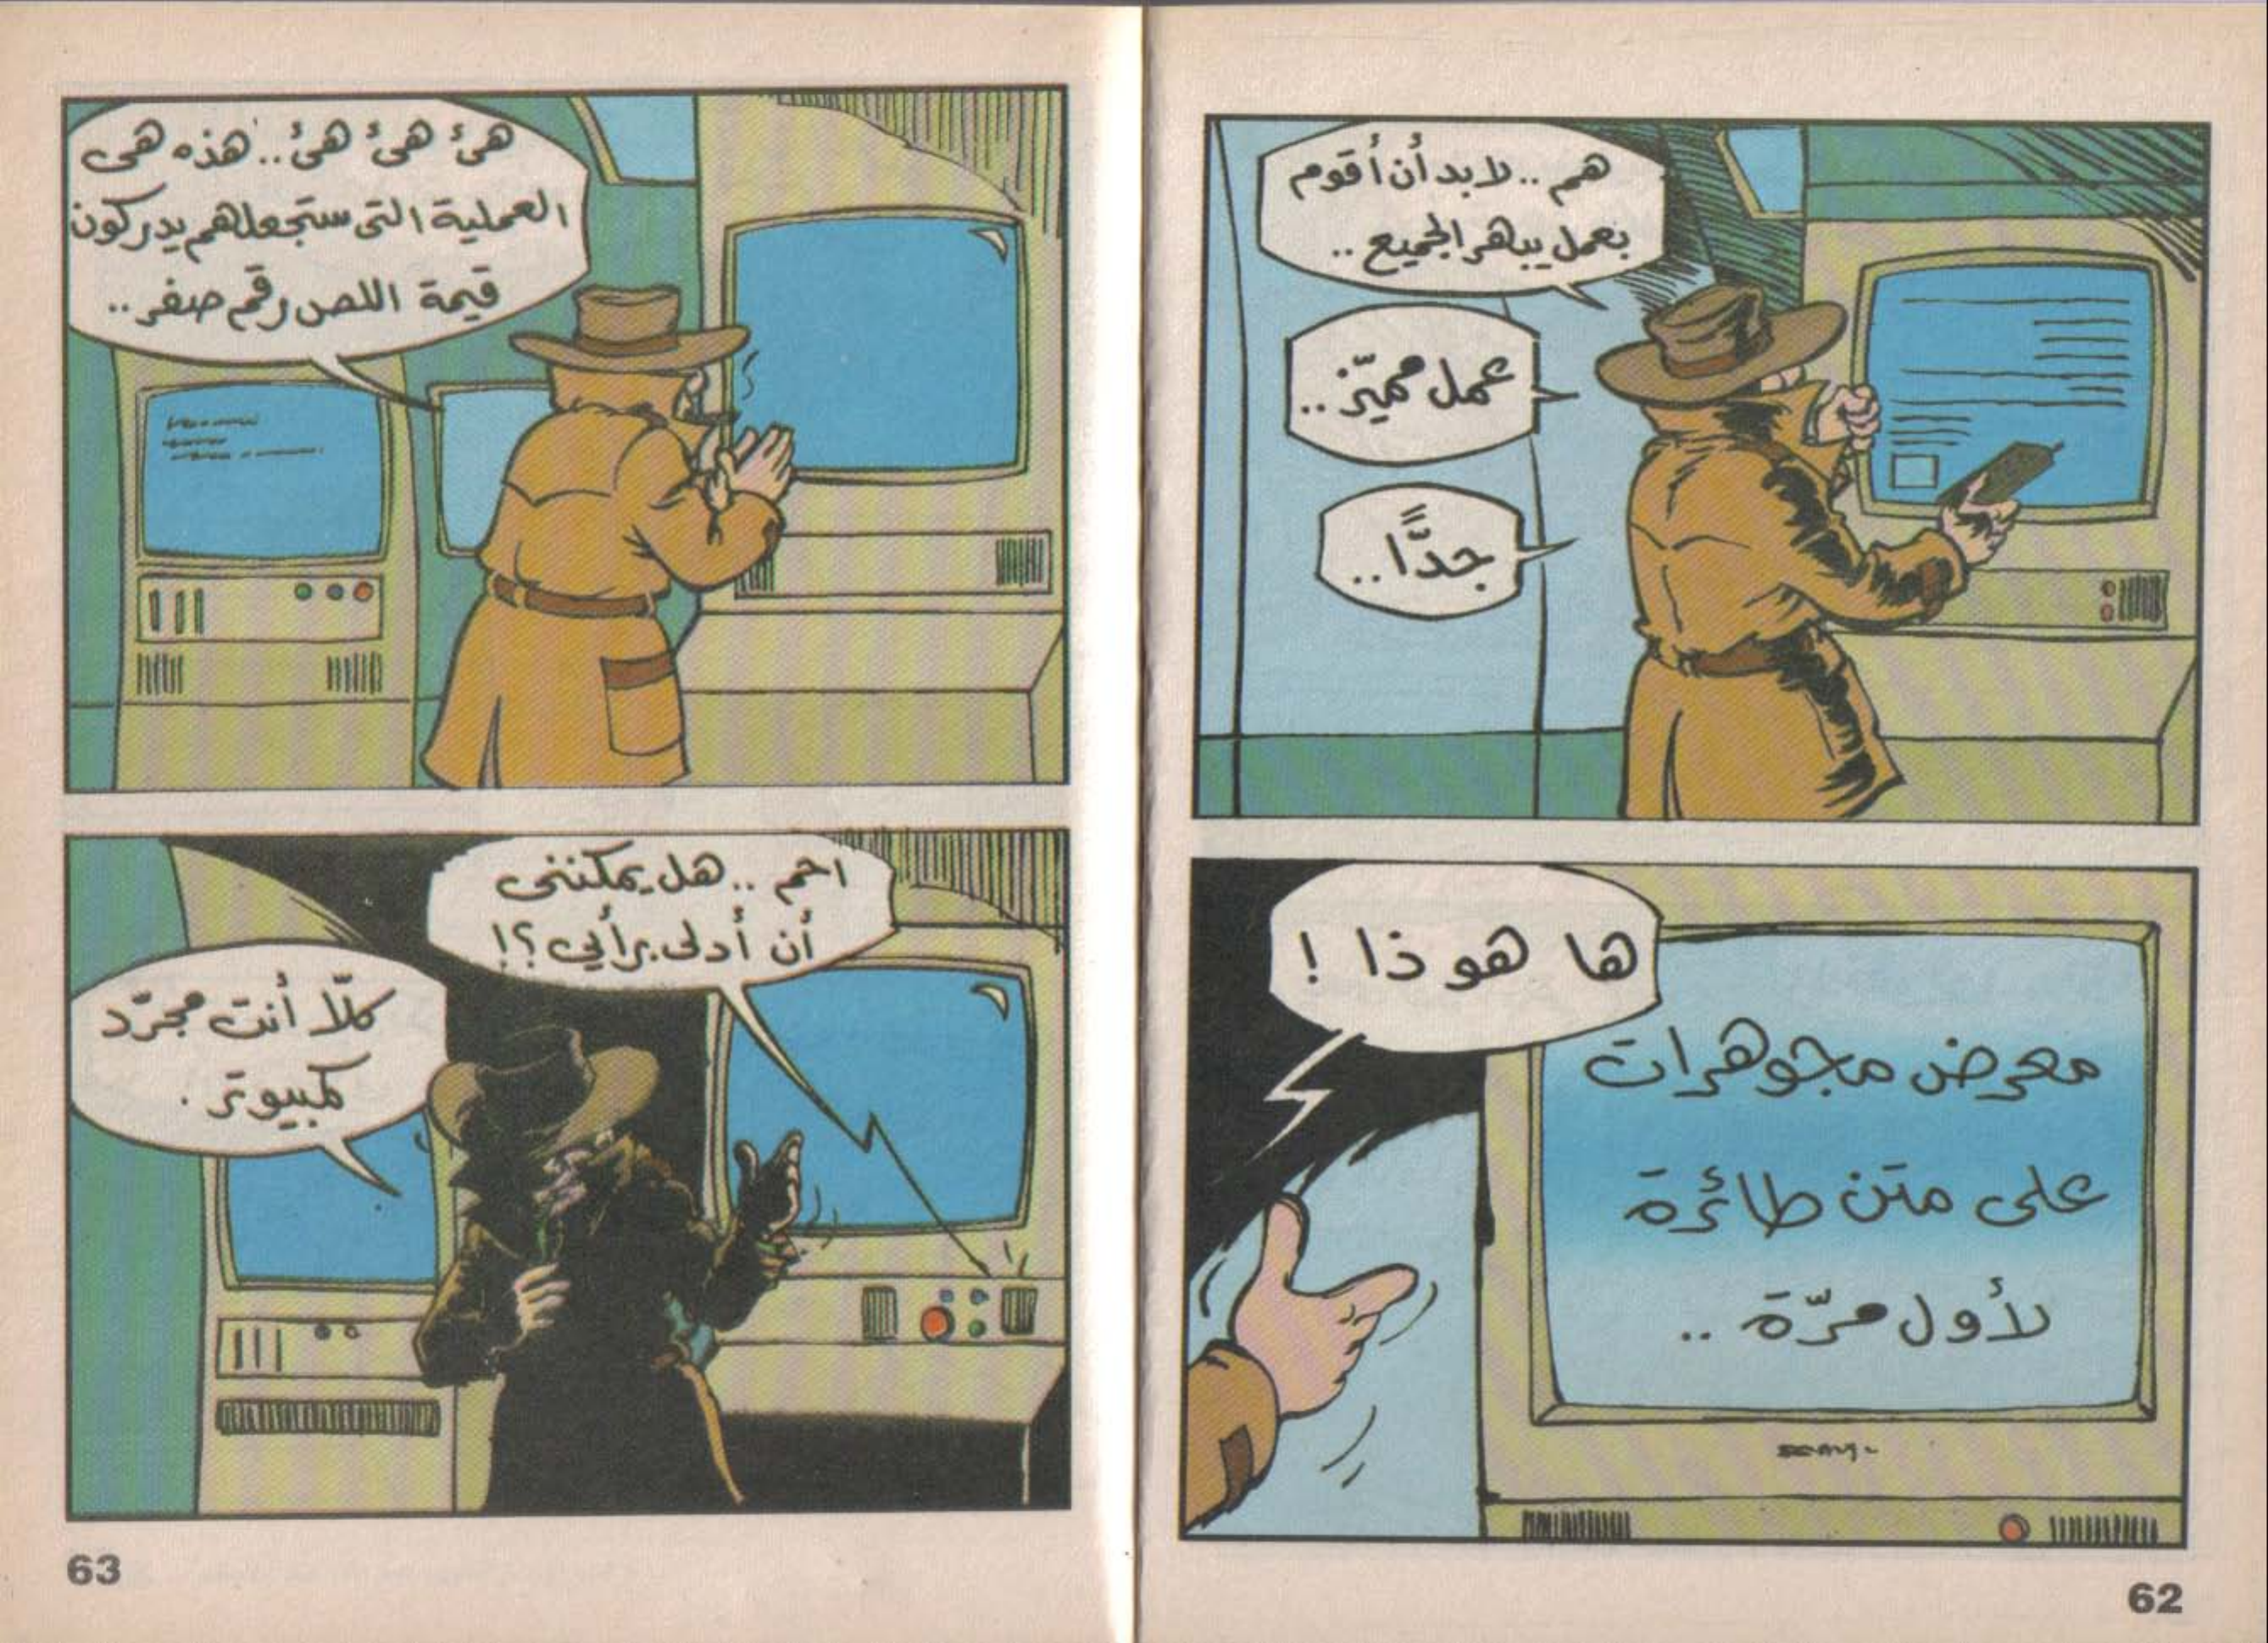 هم .. لابد أن أقوم
بعمل يبهر الجميع ..
عمل مميّز ..
جدًّا ..
ها هو ذا !
معرض مجوهرات
على متن طائرة
لأول مرّة ..
62
هئ هئ هئ .. هذه هى
العملية التى ستجعلهم يدركون
قيمة اللص رقم صفر ..
احم .. هل يمكننى
أن أدلى برأيي ؟!
كلّا أنت مجرّد
كمبيوتر .
63